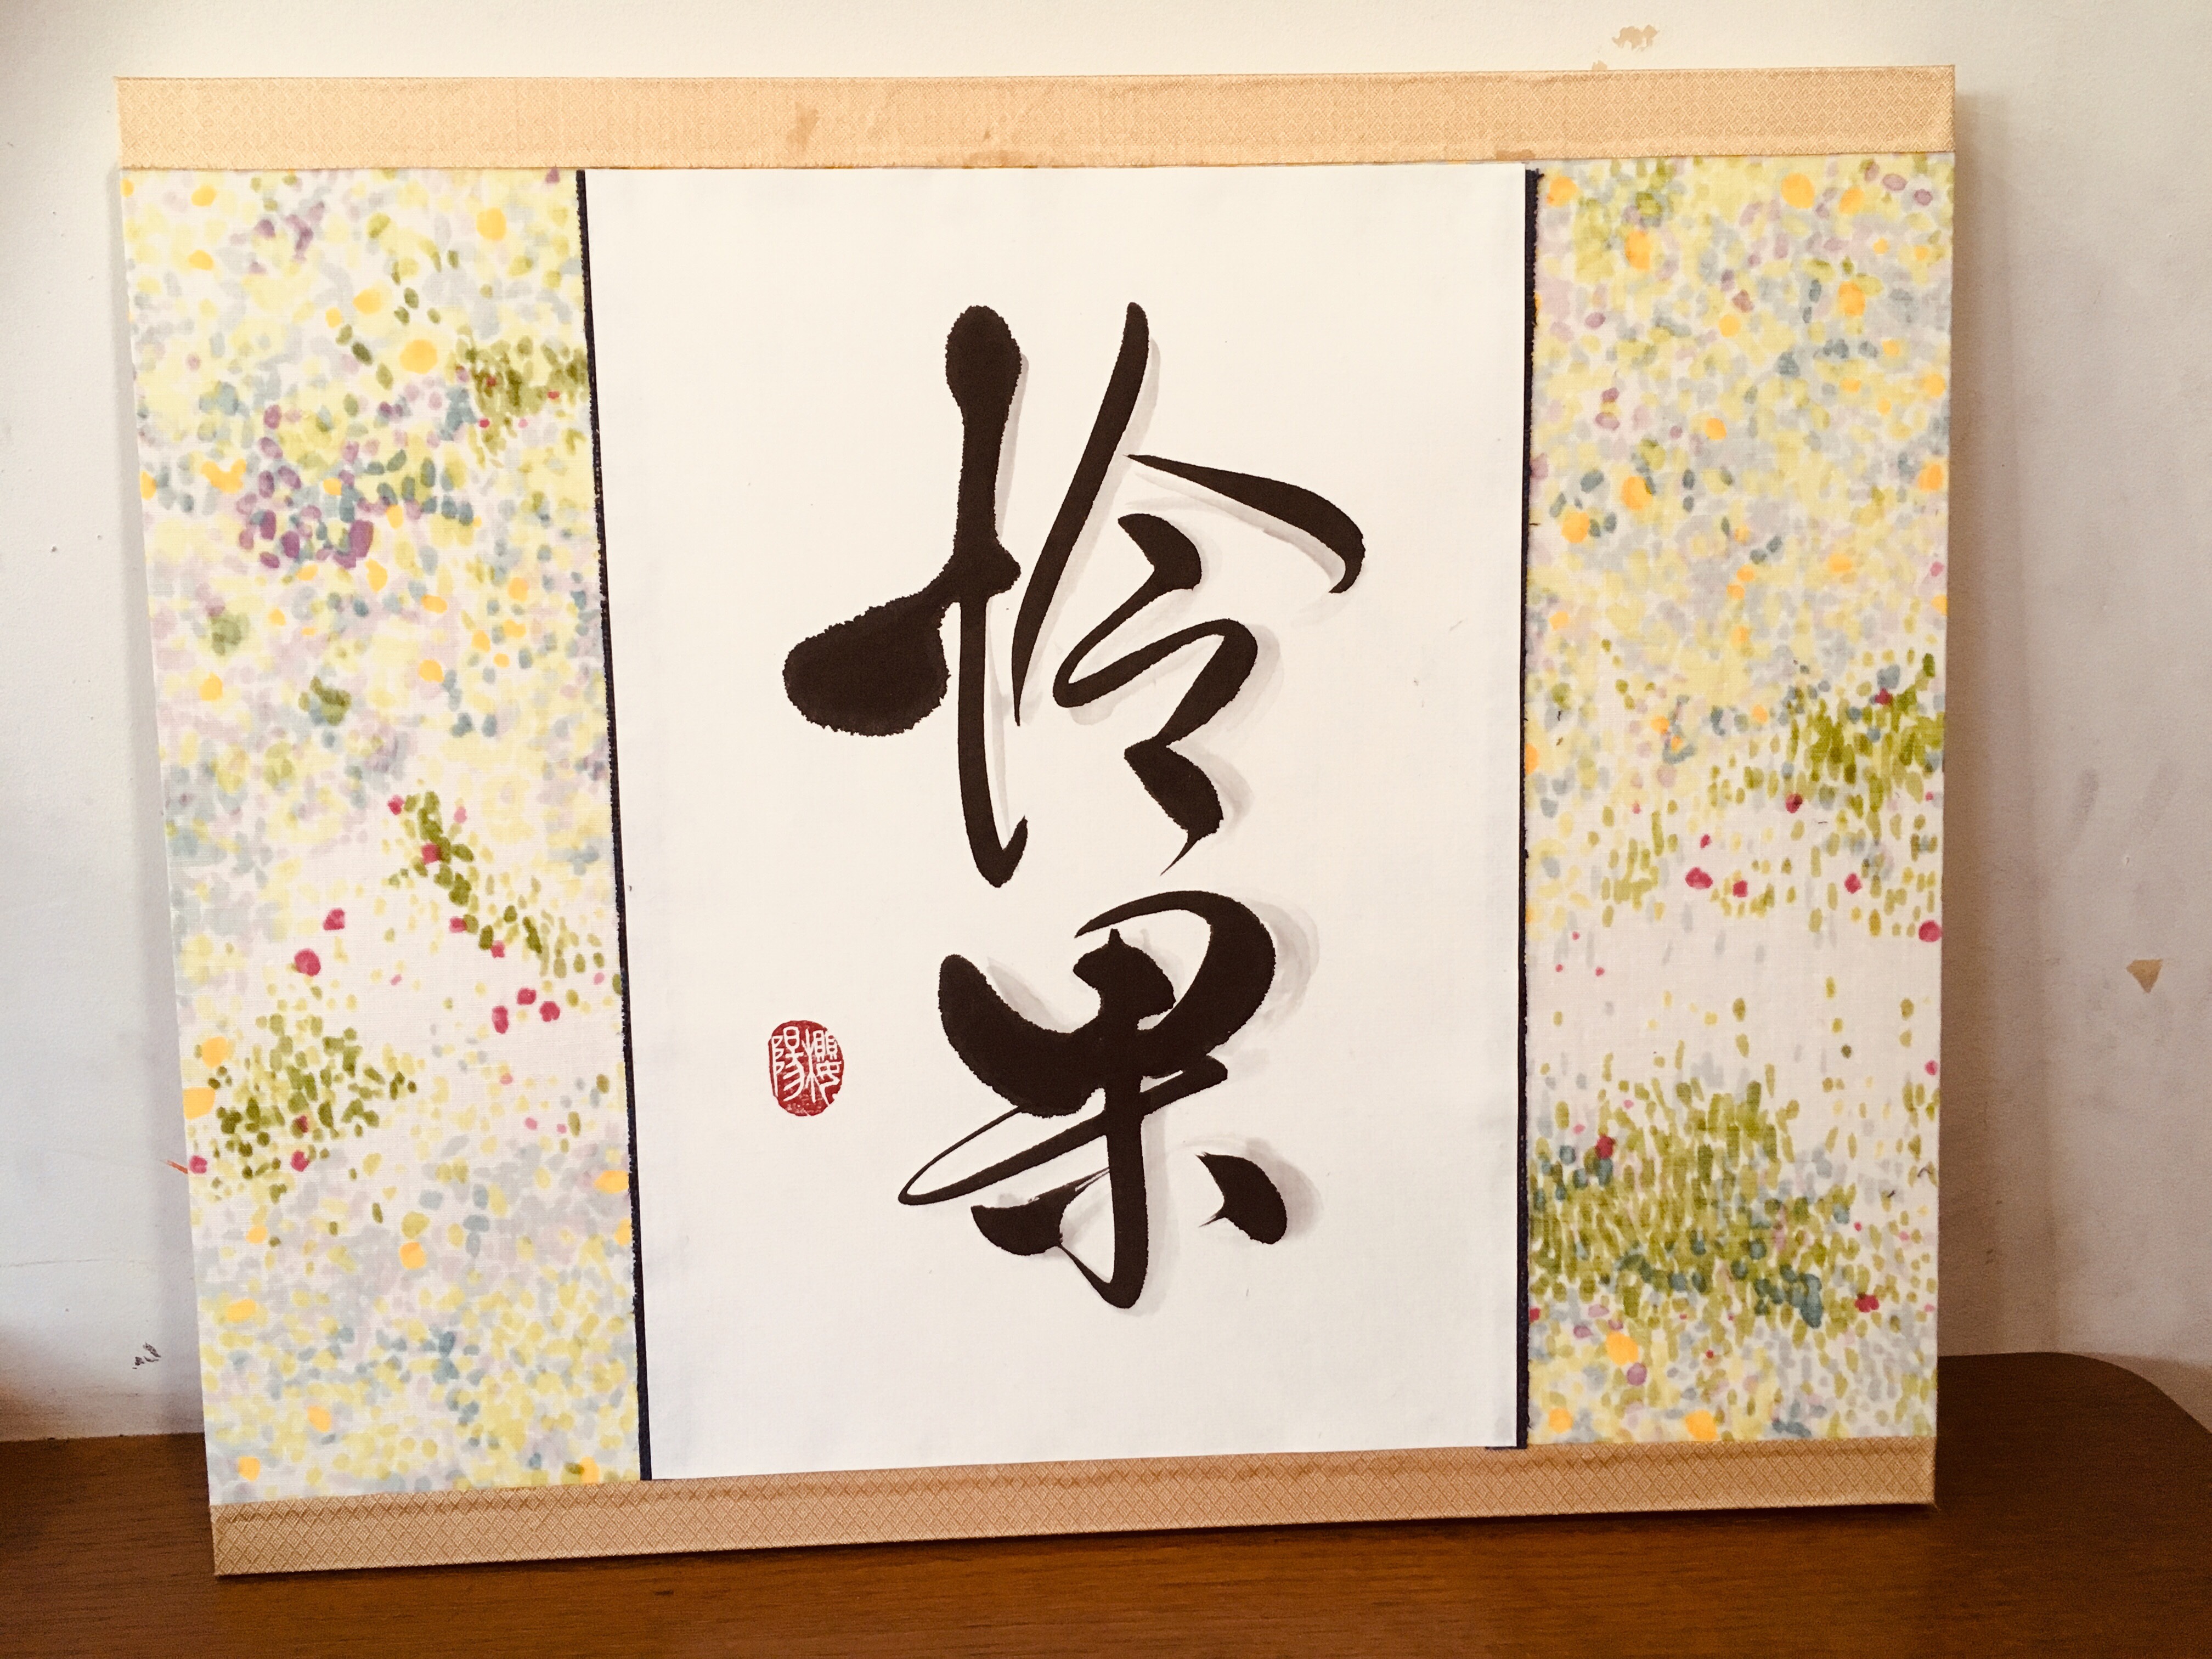 怜果
櫻陽